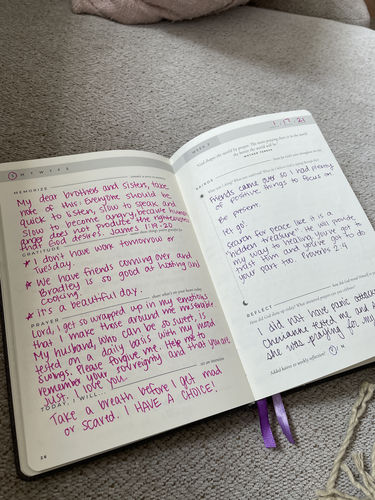 MY WEEK
MEMORIZE
My dear brothers and sisters, take
note of this: Everyone should be
quick to listen, slow to speak and
slow to become angry, because human
anger does not produce the righteousness
that God desires. James 1:19-20
GRATITUDE
* I don't have work tomorrow or
Tuesday.
* We have friends coming over and
Bradley is so good at hosting and
cooking.
* It's a beautiful day.
PRAYER
Lord, I get so wrapped up in my emotions
that I make those around me miserable.
My husband, who can be so sweet, is
tested on a daily basis with my mood
swings. Please forgive me & help me to
remember your sovreignty and that you are
just. I love you.
TODAY, I WILL...
Take a breath before I get mad
or scared. I HAVE A CHOICE!
26
WEEK 2
1.17.21
God shapes the world by prayer. The more praying there is in the world
the better the world will be
BRINGS
* friends came over so I had plenty
of positive things to focus on
Be present.
let go.
Search for peace like it is a
"hidden treasure". He will provide
my way to healing, you've got to
trust Him and you've got to do
your part too. Proverbs 2:4
REFLECT
I did not have panic attac
Cherianne texted me and
she was praying for my
Added hearts to weekly reflection?